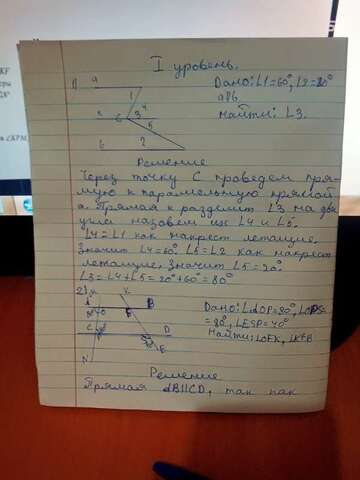 I уровень.
1) a
Дано: ∠1=60°, ∠2=20°
a||b
Найти: ∠3.
1
4
к
C
3
5
b
2
Решение
Через точку С проведем пря-
мую к параллельную прямой
a. Прямая к разделит ∠3 на два
угла назовем их ∠4 и ∠5.
∠4=∠1 как накрест лежащие.
Значит ∠4=60°. ∠5=∠2 как накрест
лежащие. Значит ∠5=20°.
∠3=∠4+∠5=20°+60°=80°
2)
B
C
D
N
=80°, ∠ESP=40°
Найти:
Решение
Прямая AB||CD, так как